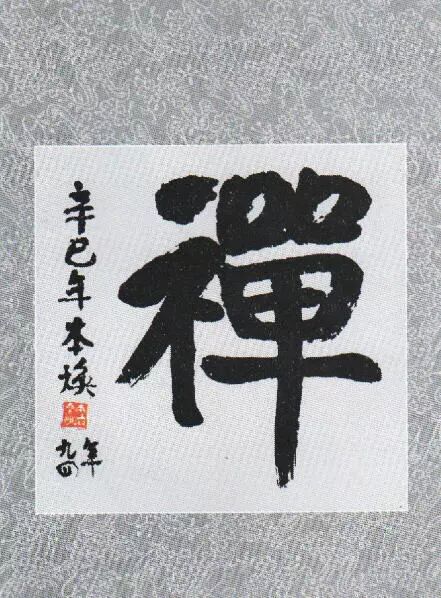 禪
辛巳年本煥
九四年